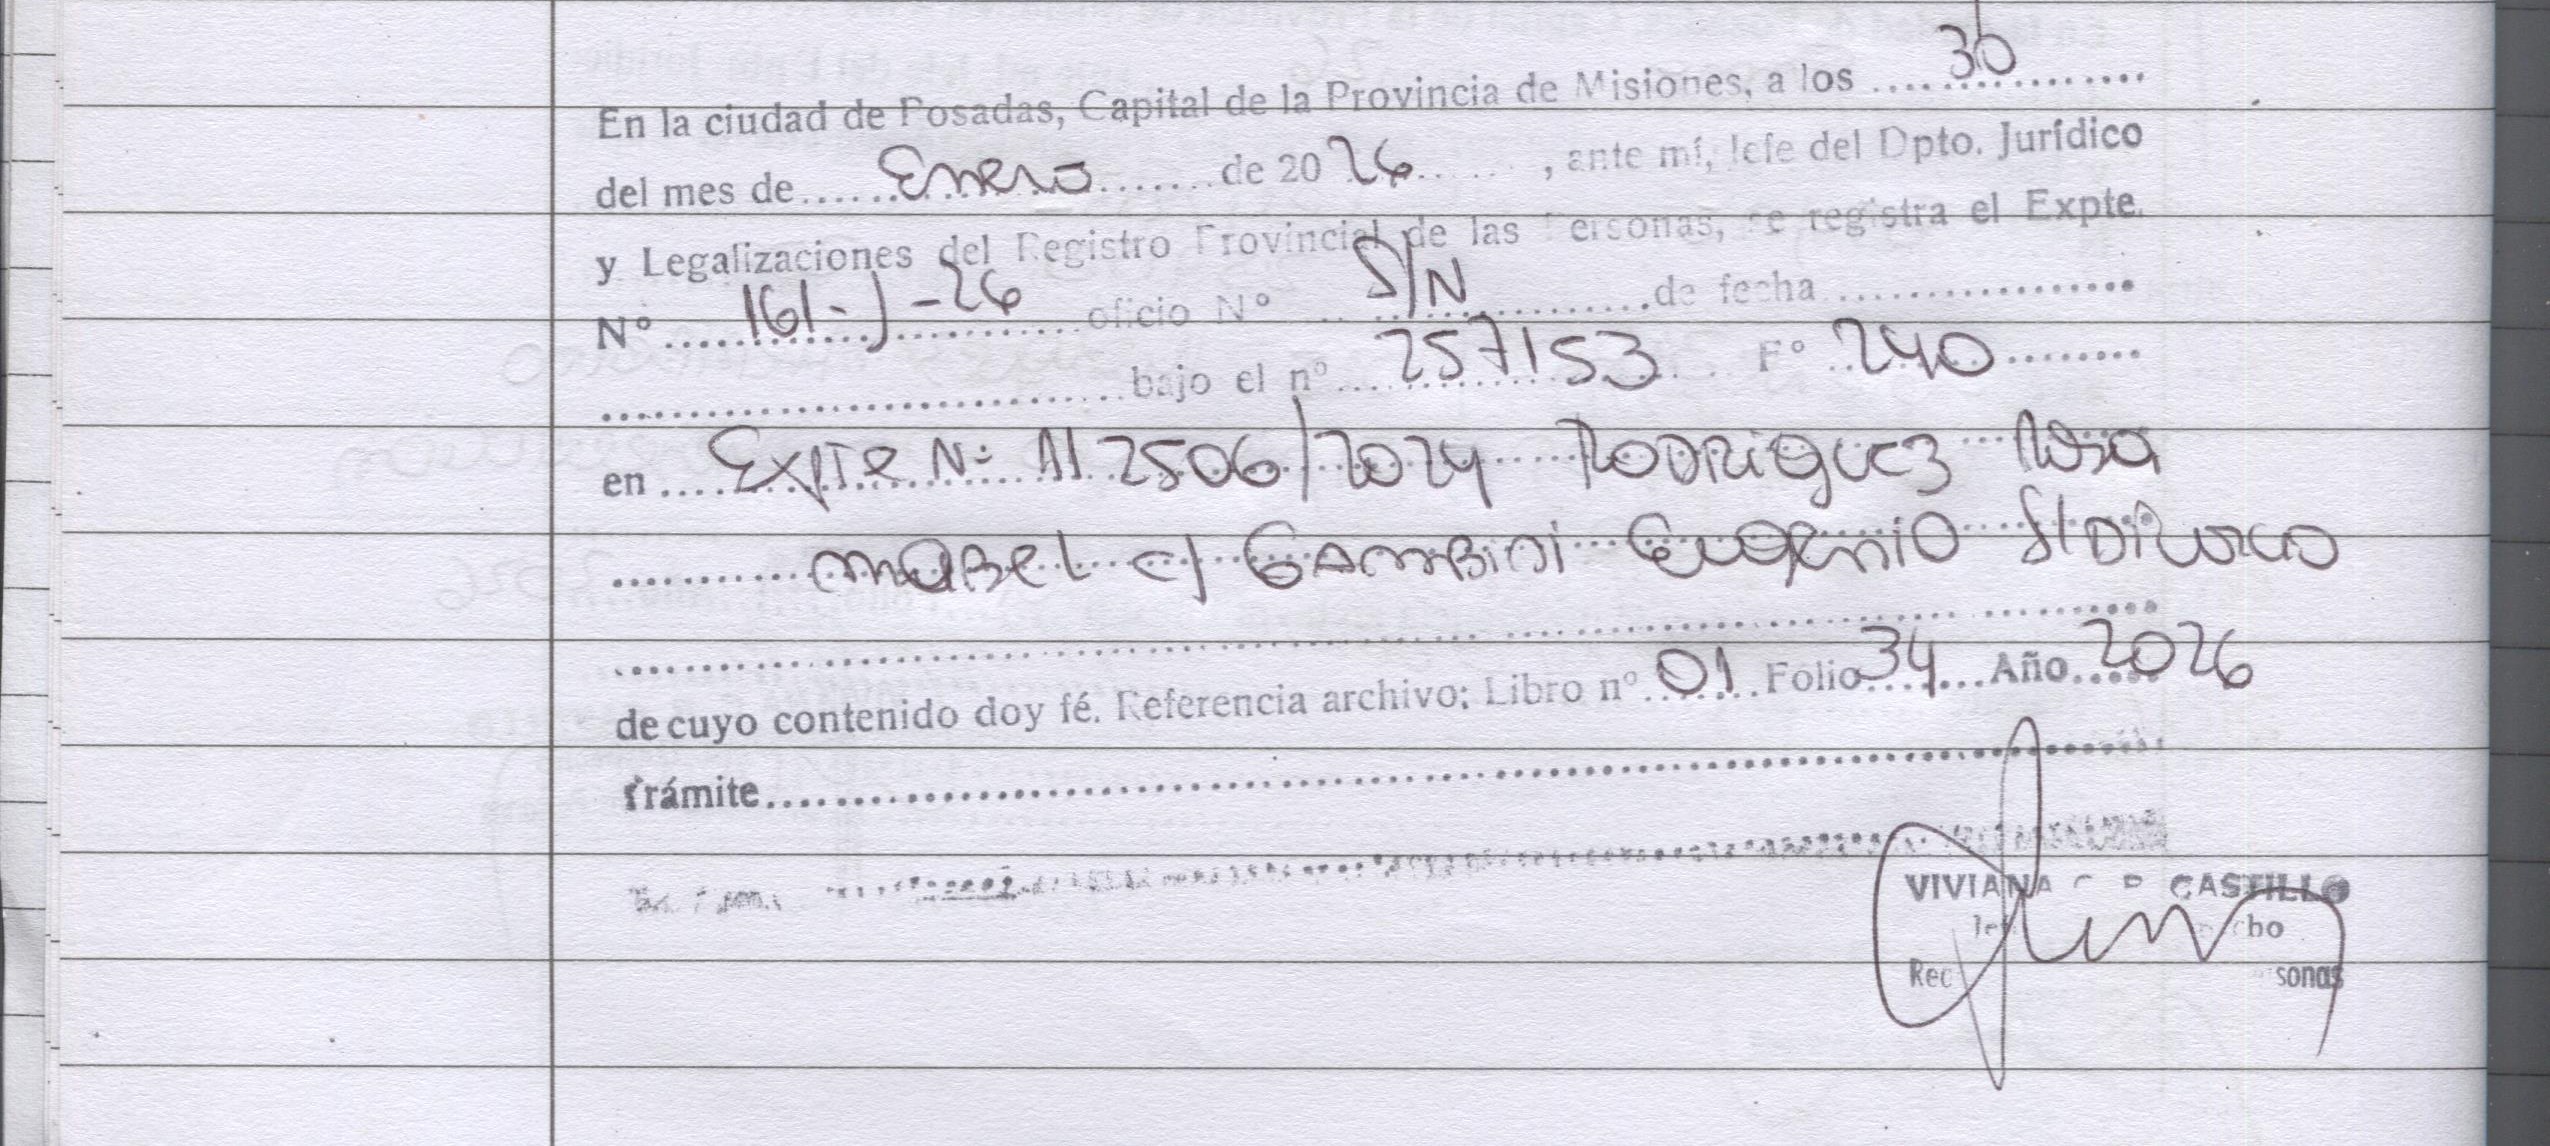 En la ciudad de Posadas, Capital de la Provincia de Misiones, a los ....30....
del mes de......Enero........de 20 26......, ante mí, Jefe del Dpto. Jurídico
y Legalizaciones del Registro Provincial de las Personas, se registra el Expte.
N° ....161-J-26.......oficio N° ....S/N.........de fecha ..................
..............................bajo el n°....257153.... F° ..240........
en ....Expte N: 112506/2024 Rodriguez Rosa
..........Mabel c/ Gambini Eugenio S/Divorcio
..............................
de cuyo contenido doy fé. Referencia archivo: Libro n°..01...Folio..34...Año..2026
Trámite..............................
VIVIANA CASTILLO